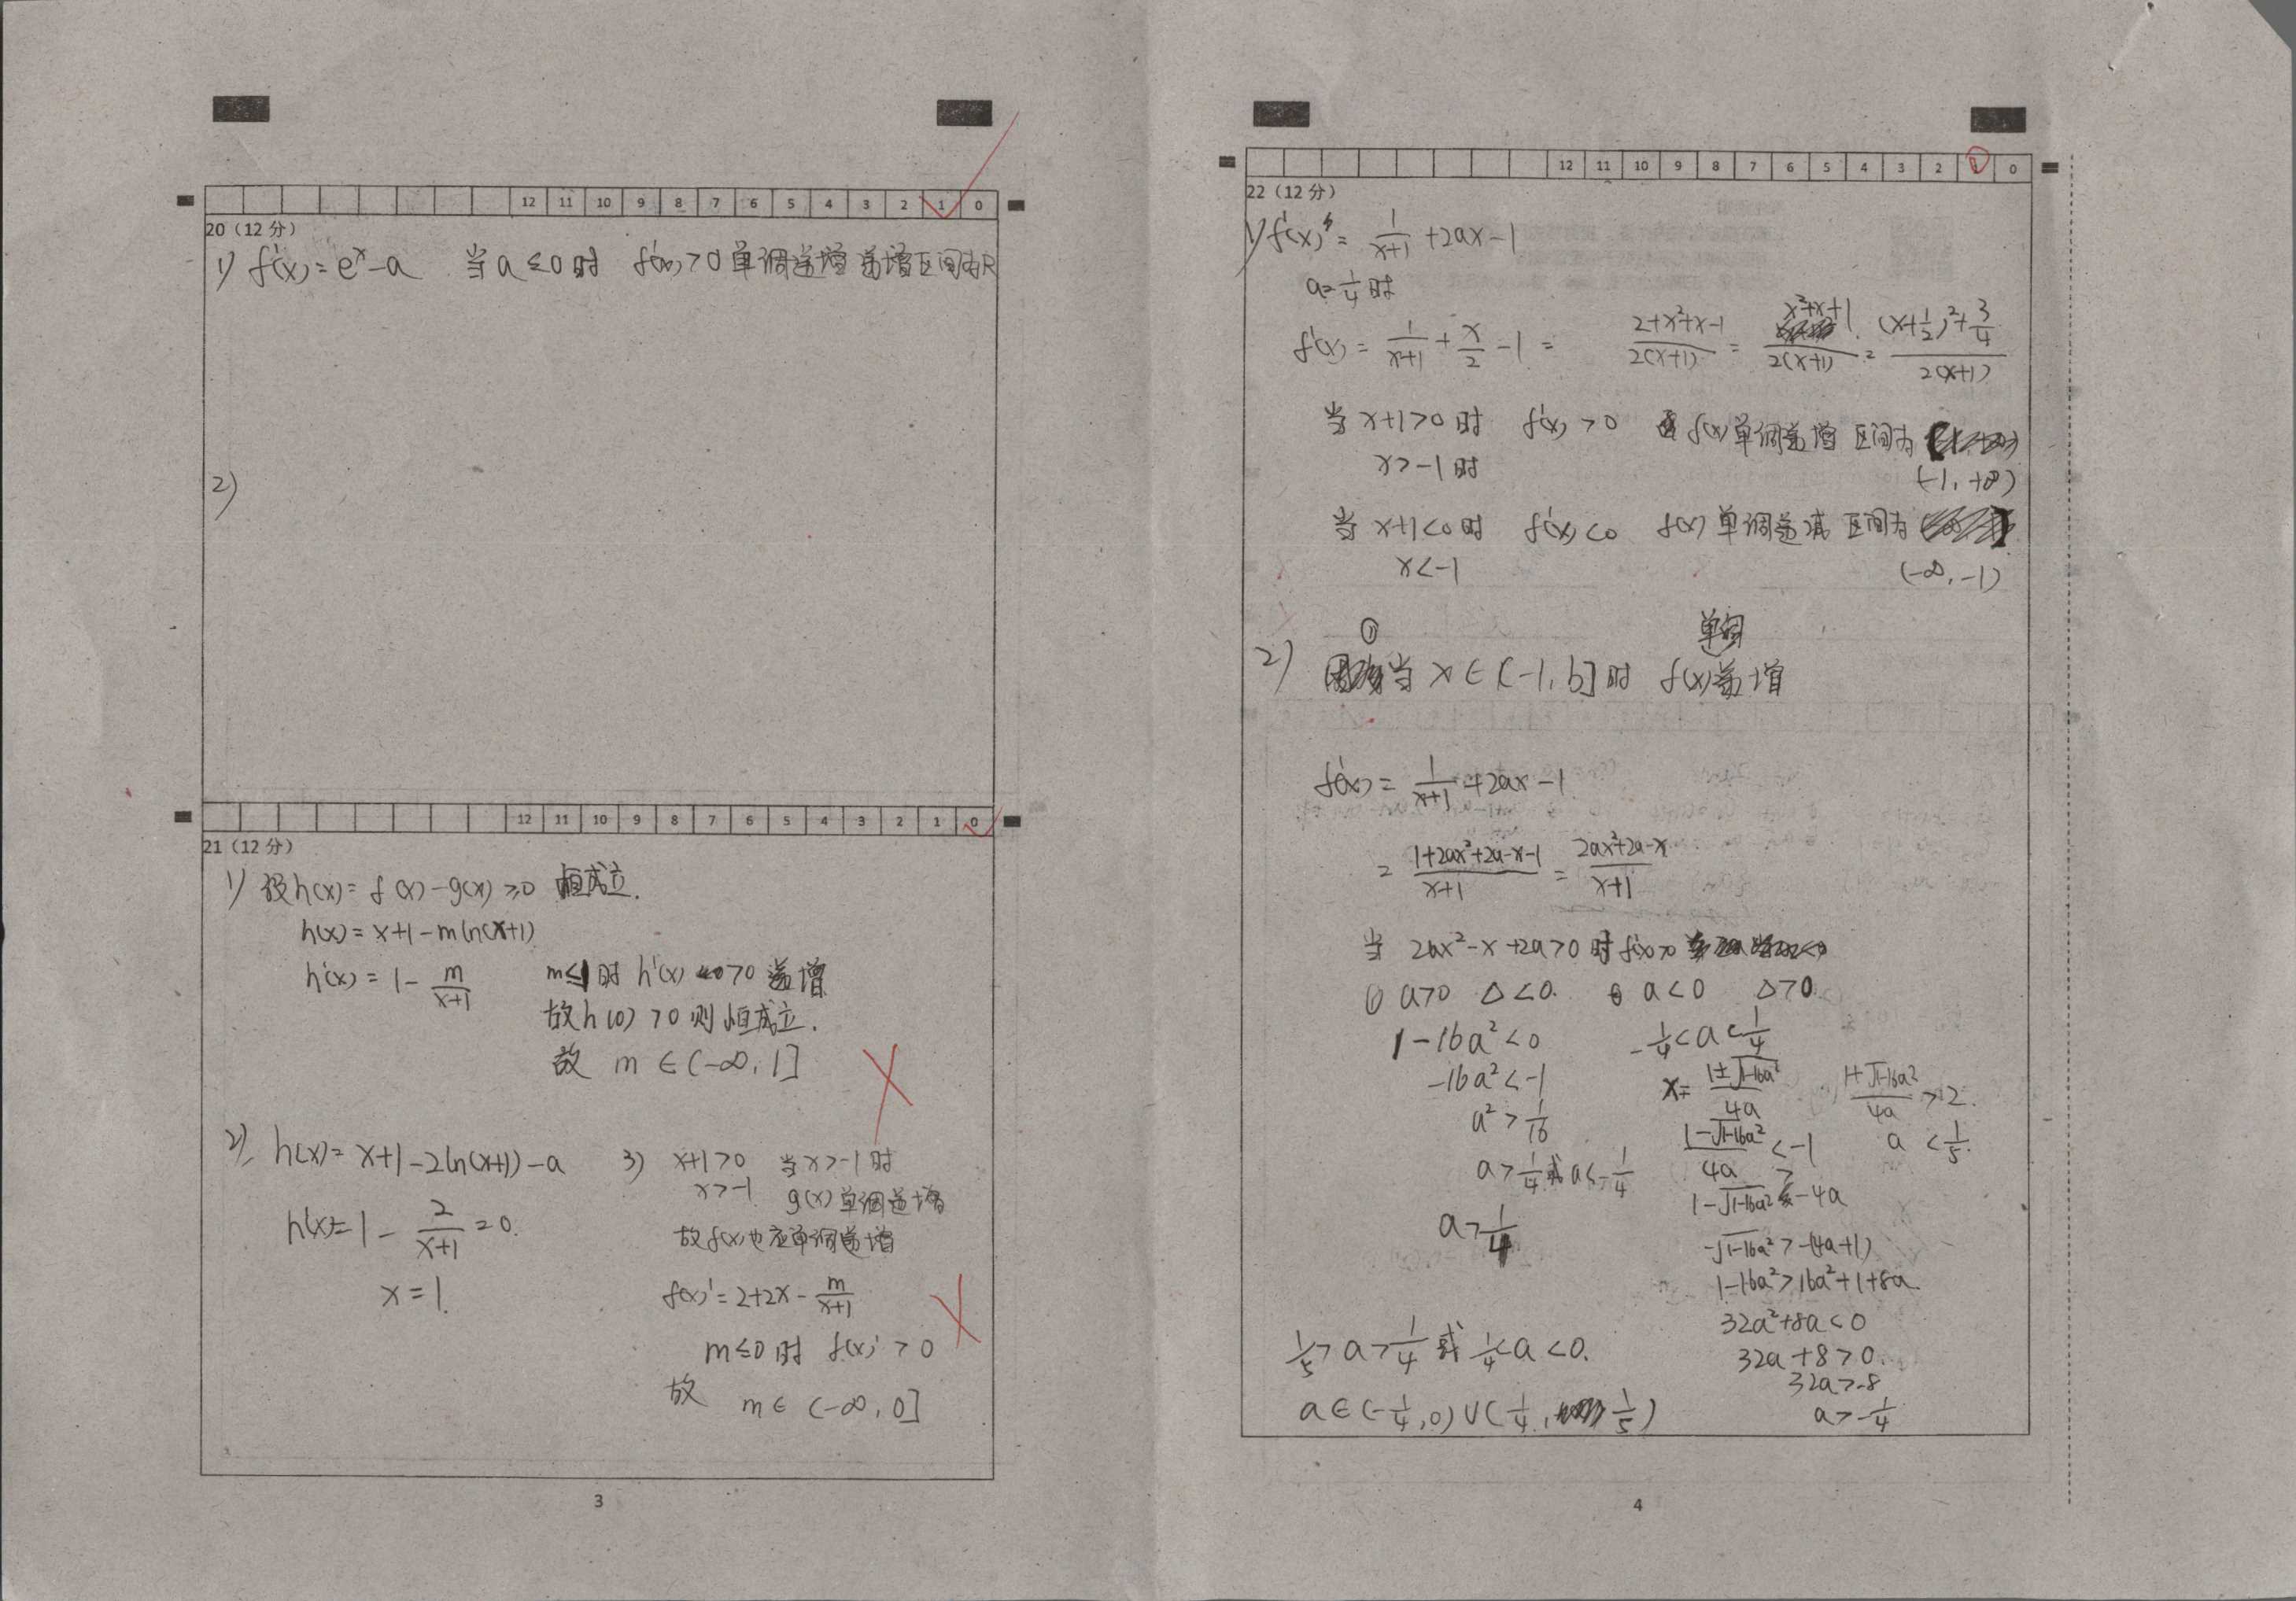 12 11 10 9 8 7 6 5 4 3 2 1 0
20（12 分）
1) f'(x)=e^x-a 当a≤0时 f'(x)>0 单调递增 递增区间为R
2)
12 11 10 9 8 7 6 5 4 3 2 1 0
21（12 分）
1) 设h(x)=f(x)-g(x)≥0 恒成立.
h(x)=x+1-mln(x+1)
h'(x)=1-m/(x+1) m≤1时 h'(x)>0 递增
故h(0)>0则恒成立.
故 m∈(-∞,1]
2) h(x)=x+1-2ln(x+1)-a
h'(x)=1-2/(x+1)=0.
x=1.
3) x+1>0 当x>-1时
x>-1 g(x)单调递增
故f(x)也应单调递增
f(x)'=2+2x-m/(x+1)
m≤0时 f(x)'>0
故 m∈(-∞,0]
3
12 11 10 9 8 7 6 5 4 3 2 1 0
22（12 分）
1) f'(x)=1/(x+1)+2ax-1
a=1/4时
f'(x)=1/(x+1)+x/2-1= (2+x²+x-1)/2(x+1) = (x²+x+1)/2(x+1) = ((x+1/2)²+3/4)/2(x+1)
当x+1>0时 f'(x)>0 f(x)单调递增 区间为
x>-1时 (-1,+∞)
当x+1<0时 f'(x)<0 f(x)单调递减 区间为
x<-1 (-∞,-1)
① 单调
2) 当x∈(-1,b]时 f(x)递增
f'(x)=1/(x+1)+2ax-1
=(1+2ax²+2a-x-1)/(x+1)=(2ax²+2a-x)/(x+1)
当 2ax²-x+2a>0 时f'(x)>0
① a>0 Δ<0. a<0 Δ>0
1-16a²<0
-16a²<-1
a²>1/16
a>1/4或a<-1/4
a>1/4
-1/4<a<1/4
x=(1±√(1-16a²))/4a (1+√(1-16a²))/4a>2.
(1-√(1-16a²))/4a<-1 a<1/5.
1-√(1-16a²)>-4a
-√(1-16a²)>-(4a+1)
1-16a²>16a²+1+8a
32a²+8a<0
32a+8>0.
32a>-8
a>-1/4
1/5>a>1/4或-1/4<a<0.
a∈(-1/4,0)∪(1/4,1/5)
4